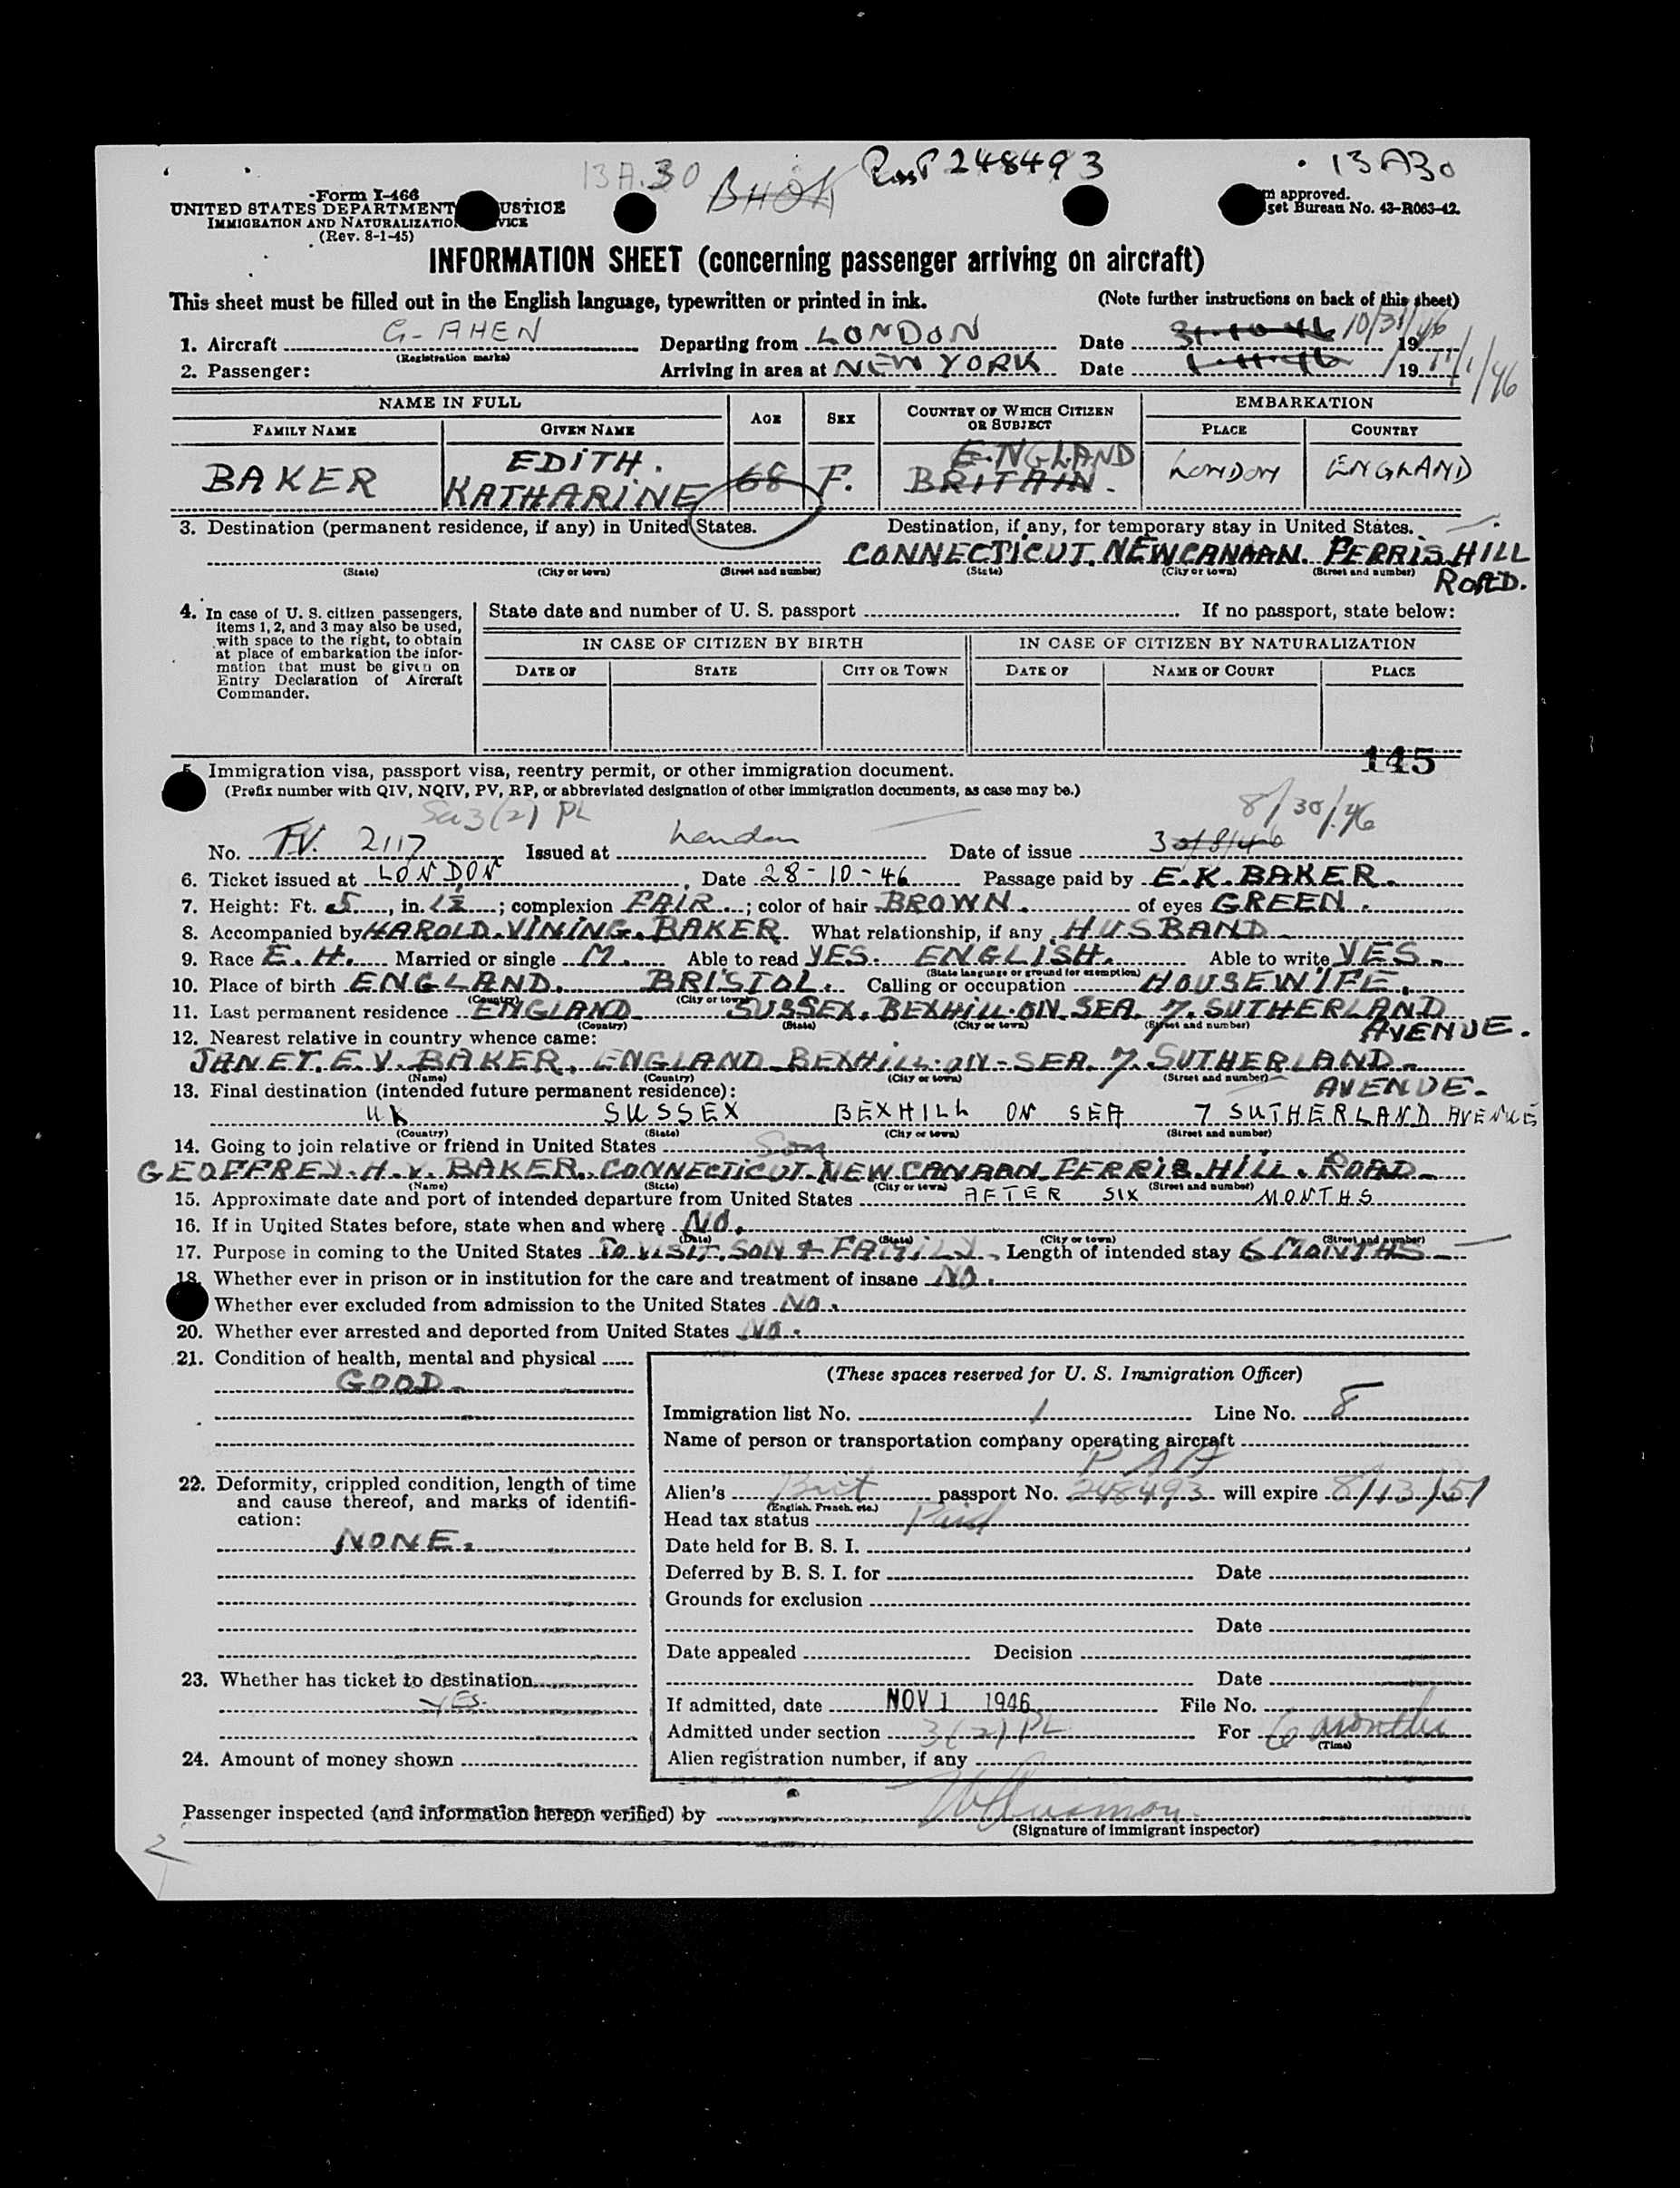 13A.30 BHOK Passt 248493 13A30
Form I-466
UNITED STATES DEPARTMENT USTICE
IMMIGRATION AND NATURALIZATIO VICE
(Rev. 8-1-45)
m approved.
get Bureau No. 43-R063-42.
INFORMATION SHEET (concerning passenger arriving on aircraft)
This sheet must be filled out in the English language, typewritten or printed in ink. (Note further instructions on back of this sheet)
1. Aircraft G-AHEN Departing from LONDON Date 31-10-46 10/31/46 19
(Registration marks)
2. Passenger: Arriving in area at NEW YORK Date 1-11-46 19 11/1/46
NAME IN FULL AGE SEX COUNTRY OF WHICH CITIZEN OR SUBJECT EMBARKATION
FAMILY NAME GIVEN NAME PLACE COUNTRY
BAKER EDITH. KATHARINE 68 F. ENGLAND BRITAIN. LONDON ENGLAND
3. Destination (permanent residence, if any) in United States. Destination, if any, for temporary stay in United States.
CONNECTICUT. NEWCANAAN. FERRIS HILL ROAD.
(State) (City or town) (Street and number) (State) (City or town) (Street and number)
4. In case of U. S. citizen passengers, items 1, 2, and 3 may also be used, with space to the right, to obtain at place of embarkation the information that must be given on Entry Declaration of Aircraft Commander.
State date and number of U. S. passport If no passport, state below:
IN CASE OF CITIZEN BY BIRTH IN CASE OF CITIZEN BY NATURALIZATION
DATE OF STATE CITY OR TOWN DATE OF NAME OF COURT PLACE
145
5. Immigration visa, passport visa, reentry permit, or other immigration document.
(Prefix number with QIV, NQIV, PV, RP, or abbreviated designation of other immigration documents, as case may be.)
3(2) PL 8/30/46
No. 2117 Issued at London Date of issue 30/8/46
6. Ticket issued at LONDON, Date 28-10-46 Passage paid by E.K. BAKER.
7. Height: Ft. 5, in. ; complexion FAIR.; color of hair BROWN. of eyes GREEN.
8. Accompanied by HAROLD VINING BAKER What relationship, if any HUSBAND
9. Race E.H. Married or single M. Able to read YES. ENGLISH. Able to write YES.
(State language or ground for exemption)
10. Place of birth ENGLAND. BRISTOL. Calling or occupation HOUSEWIFE.
(Country) (City or town)
11. Last permanent residence ENGLAND SUSSEX. BEXHILL-ON-SEA. 7. SUTHERLAND AVENUE.
(Country) (State) (City or town) (Street and number)
12. Nearest relative in country whence came:
JANET. E. V. BAKER. ENGLAND BEXHILL-ON-SEA. 7. SUTHERLAND AVENUE.
(Name) (Country) (City or town) (Street and number)
13. Final destination (intended future permanent residence):
UK SUSSEX BEXHILL ON SEA 7 SUTHERLAND AVENUE
(Country) (State) (City or town) (Street and number)
14. Going to join relative or friend in United States Son
GEOFFREY. H. V. BAKER. CONNECTICUT. NEW CANAAN FERRIS HILL ROAD
(Name) (State) (City or town) (Street and number)
15. Approximate date and port of intended departure from United States AFTER SIX MONTHS
16. If in United States before, state when and where NO.
(Date) (State) (City or town) (Street and number)
17. Purpose in coming to the United States TO VISIT SON & FAMILY. Length of intended stay 6 MONTHS
18. Whether ever in prison or in institution for the care and treatment of insane NO.
Whether ever excluded from admission to the United States NO.
20. Whether ever arrested and deported from United States NO.
21. Condition of health, mental and physical
GOOD
22. Deformity, crippled condition, length of time and cause thereof, and marks of identification:
NONE.
23. Whether has ticket to destination
YES.
24. Amount of money shown
(These spaces reserved for U. S. Immigration Officer)
Immigration list No. 1 Line No. 8
Name of person or transportation company operating aircraft
PAA
Alien's Brit passport No. 248493 will expire 8/13/51
(English, French, etc.)
Head tax status Paid
Date held for B. S. I.
Deferred by B. S. I. for Date
Grounds for exclusion
Date
Date appealed Decision
Date
If admitted, date NOV 1 1946 File No.
Admitted under section 3(2) PL For 6 months
(Time)
Alien registration number, if any
Passenger inspected (and information hereon verified) by
(Signature of immigrant inspector)
2